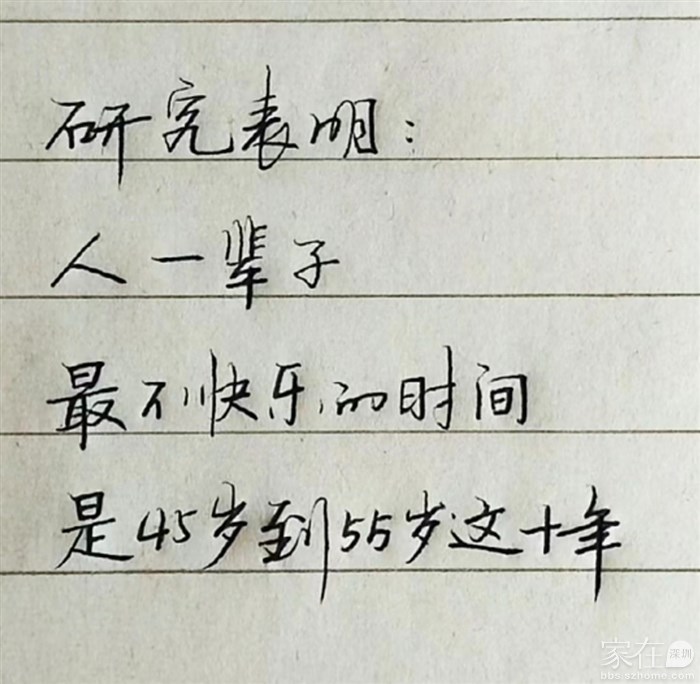 研究表明：
人一辈子
最不快乐的时间
是45岁到55岁这十年
家在深圳
bbs.szhome.com